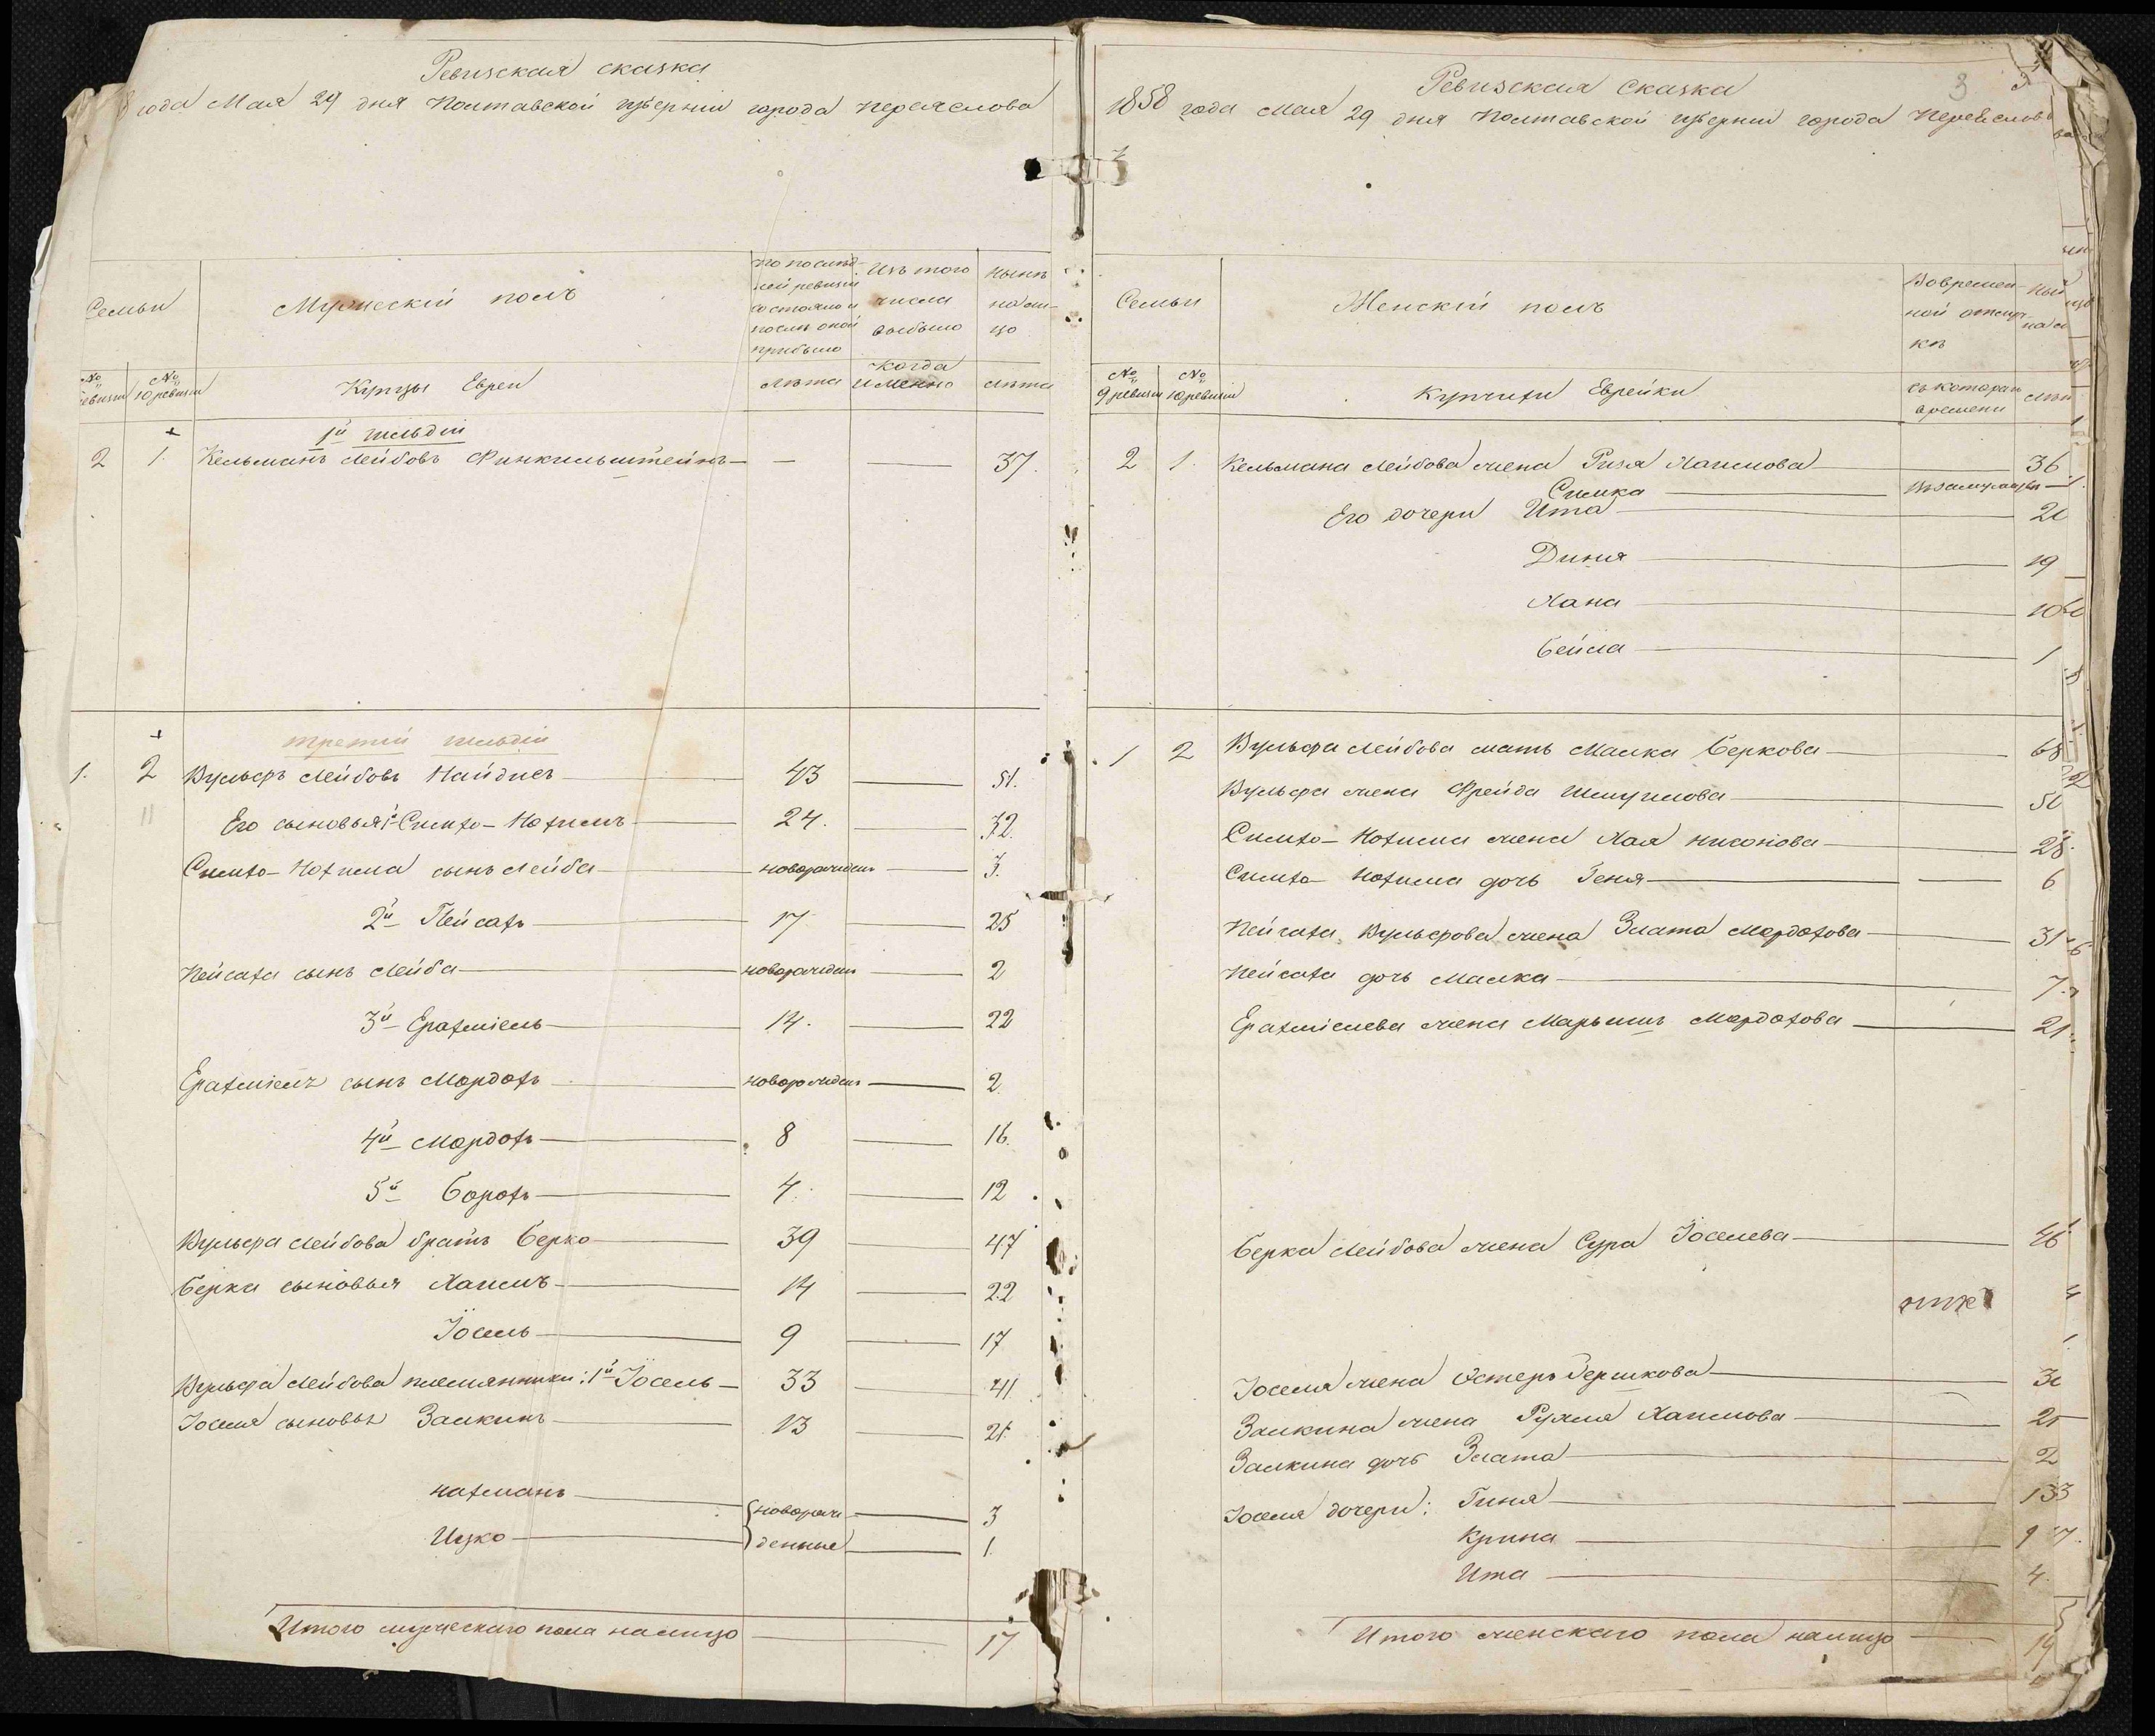 Ревизская сказка
года Мая 29 дня Полтавской губернии города Переяслова
Семьи
Мужескій полъ
По послѣд-
ней ревизіи
состояло и
послѣ оной
прибыло
Изъ того
числа
выбыло
Нынѣ
на ли-
цо
№ ревизіи
№ 10 ревизіи
Купцы Евреи
лѣта
когда
именно
лѣта
1й гильдіи
2 1. Кельманъ Лейбовъ Финкильштейнъ — — — 37.
третій гильдіи
1. 2 Вульфъ Лейбовъ Найдисъ — 43 — 51.
11
Его сыновья: 1й Симхо-Нохимъ — 24. — 32.
Симхо-Нохима сынъ Лейба — новорожденъ — 3.
2й Пейсахъ — 17 — 25
Пейсаха сынъ Лейба — новорожденъ — 2
3й Ерахміель — 14. — 22
Ерахміелъ сынъ Мордохъ — новорожденъ — 2.
4й Мордохъ — 8 — 16.
5й Борохъ — 4. — 12
Вульфа Лейбова братъ Берко — 39 — 47
Берка сыновья Хаимъ — 14 — 22
Іосель — 9 — 17
Вульфа Лейбова племянники: 1й Іосель — 33 — 41
Іоселя сыновья Залкинъ — 13 — 21.
Нахманъ — {новорож — 3
Ицко — }денные — 1.
Итого мужескаго пола налицо — 17
Ревизская Сказка
3
1858 года Мая 29 дня Полтавской губерніи города Переяслов
Семьи
Женскій полъ
Во времен-
ной отлуч-
кѣ
№ 9 ревизіи
№ 10 ревизіи
Купчихи Еврейки
съ котораго
времени
2 1. Кельмана Лейбова жена Рися Хаимова — 36
Симка — въ замужествѣ
Его дочери Ита — 20
Диня — 19
Хана — 10
Бейла — 1
1 2 Вульфа Лейбова мать Малка Беркова — 68
Вульфа жена Фрейда Шмуилова — 50
Симхо-Нохима жена Хая Нисонова — 28
Симхо Нохима дочь Геня — 6
Пейсаха Вульфова жена Злата Мордохова — 31
Пейсаха дочь Малка — 7
Ерахміелева жена Марьяшъ Мордохова — 21.
Берка Лейбова жена Сура Іоселева — 46
Іоселя жена Эстеръ Гершкова — 30
Залкина жена Рухля Хаимова — 21
Залкина дочь Злата — 2
Іоселя дочери: Гиня — 13
Крина — 9
Ита — 4.
Итого женскаго пола налицо — 19